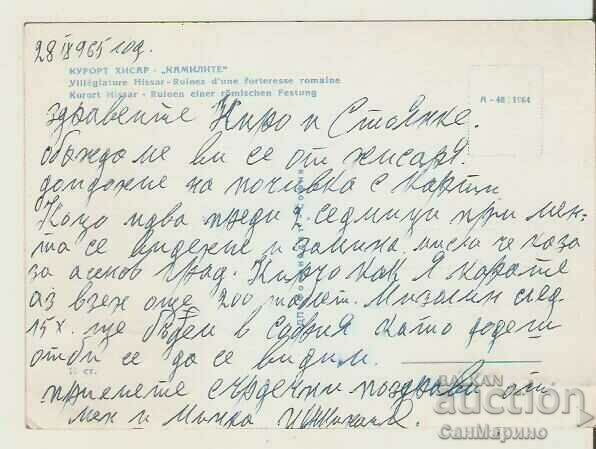 28 IX 965 год.
КУРОРТ ХИСАР - „КАМИЛИТЕ"
Villégiature Hissar - Ruines d'une forteresse romaine
Kurort Hissar - Ruinen einer römischen Festung
А - 48 : 1964
здравейте Киро и Стоянке.
обаждаме ви се от хисаря.
дойдохме на почивка с карти
Коцо идва преди 2 седмици при мен
та се видехме и замина, мисля че каза
за асенов град. Кирчо как я карате
аз взех още 200 памет. Мизалин след
15 X. ще бъдем в София като додеш
отби се да се видим.
11 ст.
приемете сърдечни поздрави от
мен и Минка
BALKAN
auction
СанМарино